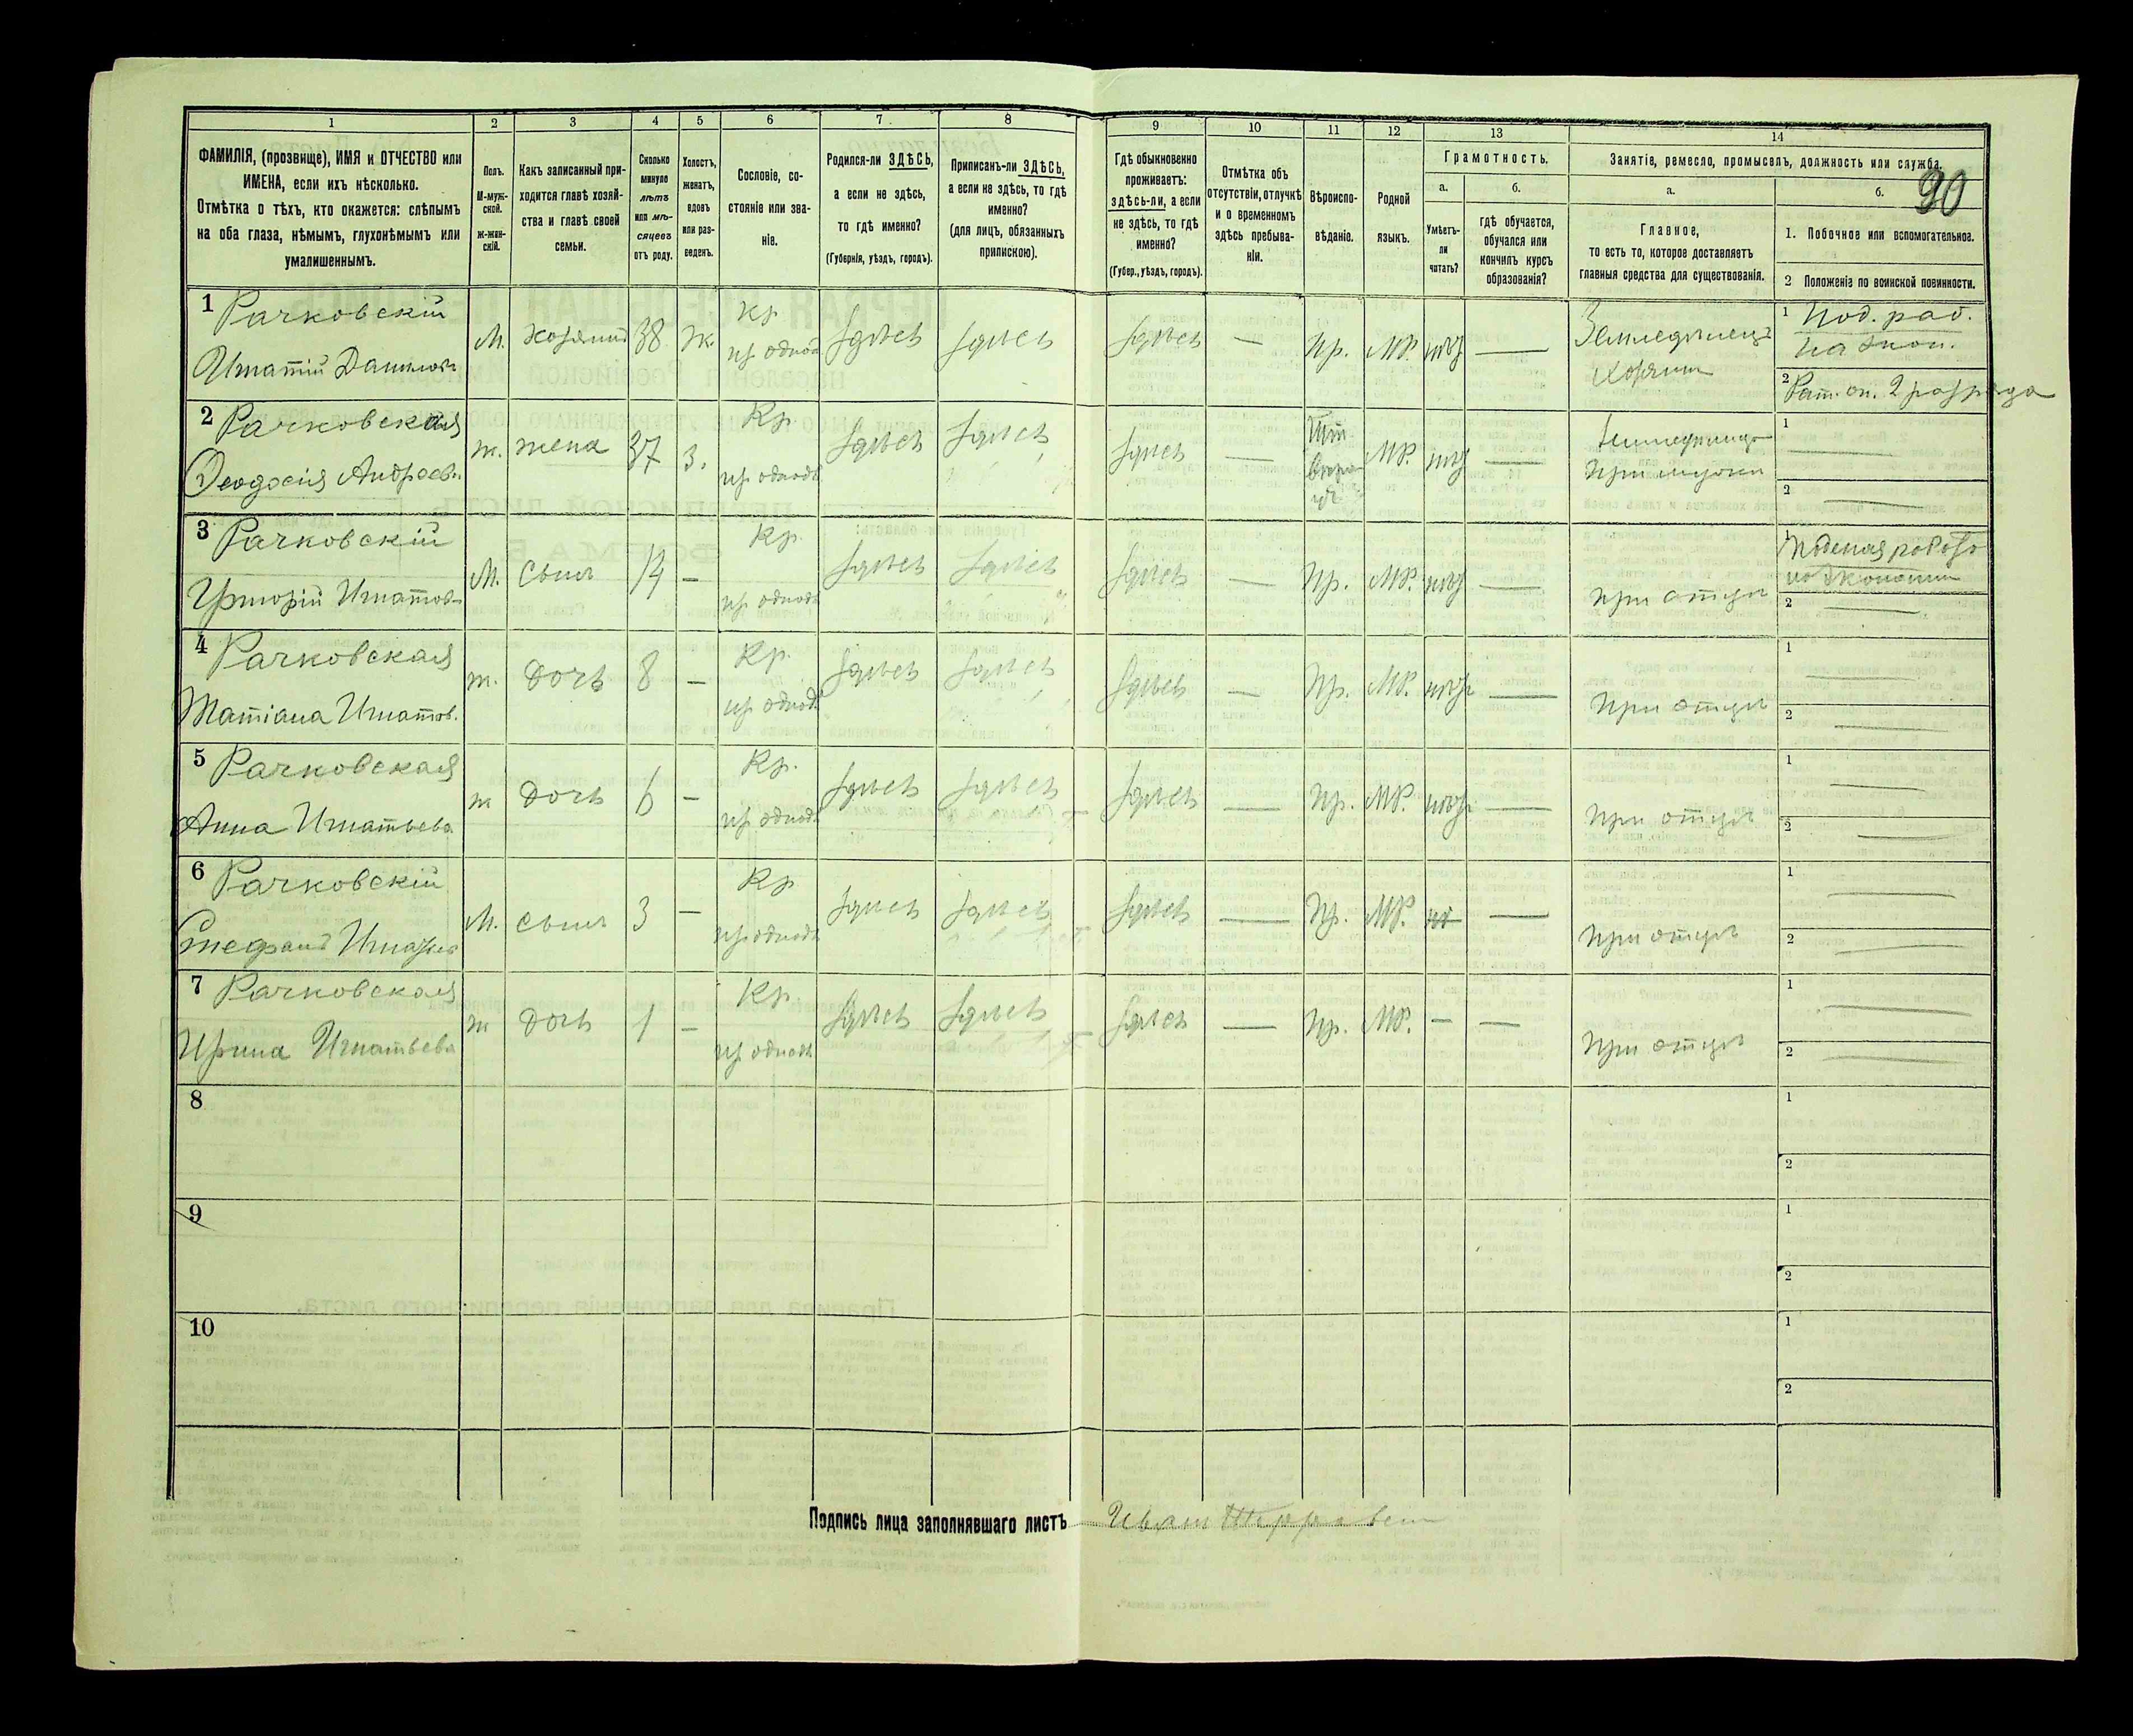 1 2 3 4 5 6 7 8 9 10 11 12 13 14
ФАМИЛІЯ, (прозвище), ИМЯ и ОТЧЕСТВО или
ИМЕНА, если ихъ нѣсколько.
Отмѣтка о тѣхъ, кто окажется: слѣпымъ
на оба глаза, нѣмымъ, глухонѣмымъ или
умалишеннымъ.
Полъ.
М-муж-
ской.
ж-жен-
скій.
Какъ записанный при-
ходится главѣ хозяй-
ства и главѣ своей
семьи.
Сколько
минуло
лѣтъ
или мѣ-
сяцевъ
отъ роду.
Холостъ,
женатъ,
вдовъ
или раз-
веденъ.
Сословіе, со-
стояніе или зва-
ніе.
Родился-ли ЗДѢСЬ,
а если не здѣсь,
то гдѣ именно?
(Губернія, уѣздъ, городъ).
Приписанъ-ли ЗДѢСЬ,
а если не здѣсь, то гдѣ
именно?
(для лицъ, обязанныхъ
припискою).
Гдѣ обыкновенно
проживаетъ:
здѣсь-ли, а если
не здѣсь, то гдѣ
именно?
(Губер., уѣздъ, городъ).
Отмѣтка объ
отсутствіи, отлучкѣ
и о временномъ
здѣсь пребыва-
ніи.
Вѣроиспо-
вѣданіе.
Родной
языкъ.
Грамотность.
а.
Умѣетъ-
ли
читать?
б.
гдѣ обучается,
обучался или
кончилъ курсъ
образованія?
Занятіе, ремесло, промыселъ, должность или служба.
90
а.
Главное,
то есть то, которое доставляетъ
главныя средства для существованія.
б.
1. Побочное или вспомогательное.
2 Положеніе по воинской повинности.
1 Рачковскій
Игнатій Данилов
М. хозяинъ 38 ж. Кр. здѣсь здѣсь здѣсь — Пр. МР. нѣтъ —
Земледѣлецъ
Хозяин
1 Под. раб.
на экон.
2 Рат. оп. 2 разряда
2 Рачковская
Ѳеодосія Андреев.
ж. жена 37 з. Кр. здѣсь здѣсь здѣсь — МР. нѣтъ —
При мужи
1 —
2 —
3 Рачковскій
Григорій Игнатов
М. Сынъ 14 — Кр. здѣсь здѣсь здѣсь — Пр. МР. нѣтъ —
При отцѣ
1 Поденая работа
2 —
4 Рачковская
Татіана Игнатов.
ж. Дочь 8 — Кр. здѣсь здѣсь здѣсь — Пр. МР. нѣтъ —
При отцѣ
1 —
2 —
5 Рачковская
Анна Игнатьева
ж Дочь 6 — Кр. здѣсь здѣсь здѣсь — Пр. МР. нѣтъ —
При отцѣ
1 —
2 —
6 Рачковскій
Стефанъ
М. сынъ 3 — Кр. здѣсь здѣсь здѣсь — Пр. МР. —
При отцѣ
1 —
2 —
7 Рачковская
Ирина Игнатьева
ж Дочь 1 — Кр. здѣсь здѣсь здѣсь — Пр. МР. — —
При отцѣ
1 —
2 —
8
1
2
9
1
2
10
1
2
Подпись лица заполнявшаго листъ Иван